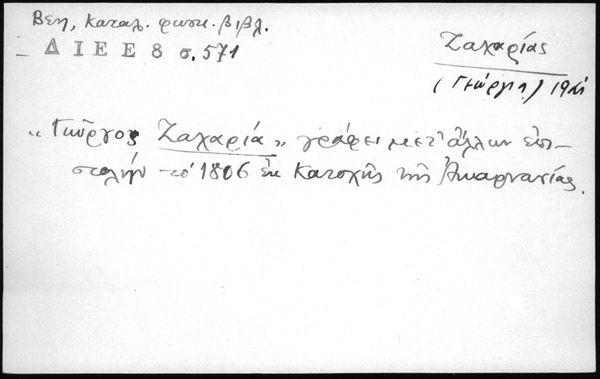 Βεη, Καταλ. φωτ. βιβλ.
ΔΙΕΕ 8 σ. 571
Ζαχαρίας
(Γεώργιος)
« Γιῶργος Ζαχαρία » γράφει μετ' ἄλλων ἐπι-
στολήν τὸ 1806 ἐκ Κατοχῆς τῆς Ἀκαρνανίας.